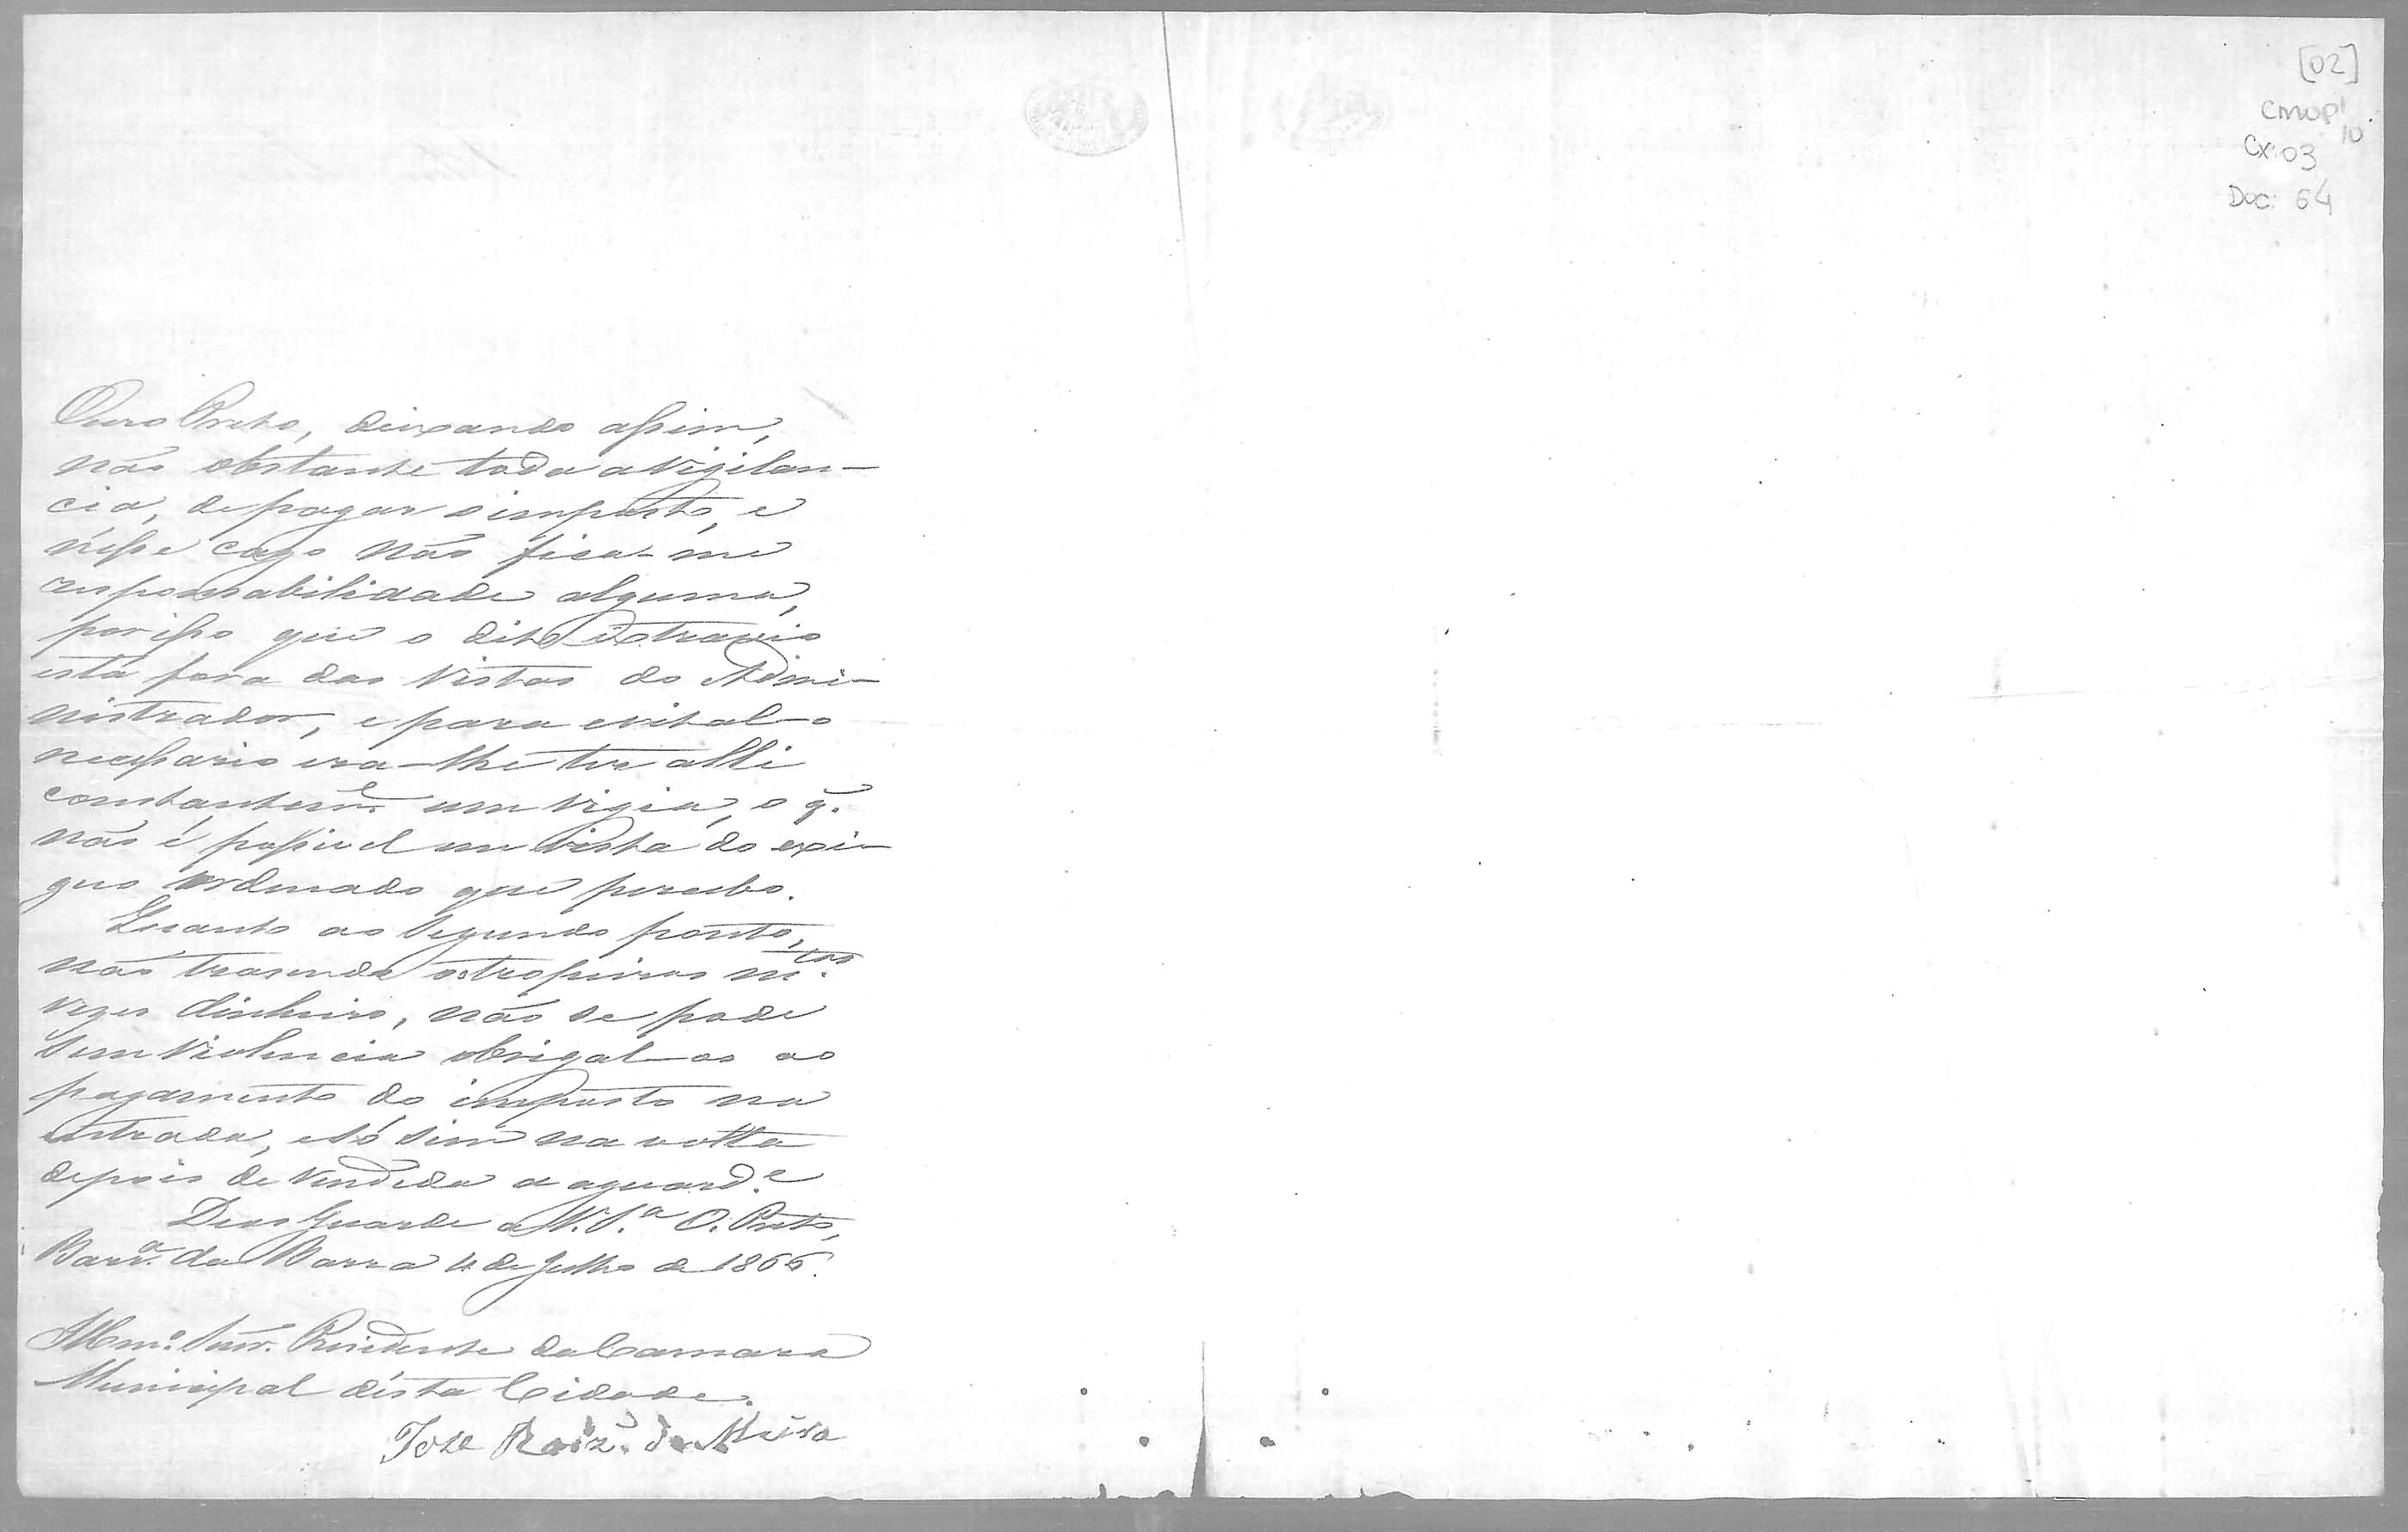 Ouro Preto, deixando assim,
não obstante toda a vigilan-
cia, de pagar o imposto, e
n'esse cazo não fica-me
responsabilidade alguma,
por isso que o dito extravio
está fora das vistas do Admi-
nistrador, e para evital-o
necessario era-lhe ter alli
constantem.e um vigia, o q.
não é possivel em vista do exi-
guo ordenado que percebo.
Quanto ao segundo ponto,
não trasendo os tropeiros m.tas
vezes dinheiro, não se pode
sem violencia obrigal-os ao
pagamento do imposto na
entrada, e só sim na volta
depois de vendida a aguard.e
Deos Guarde a V. S.a O. Preto,
Barr.a da Barra 4 de Julho de 1866.
Illm.o Snr. Presidente da Camara
Municipal d'esta Cidade.
Jose Roiz.
[02]
CMOP
10
Cx: 03
Doc: 64